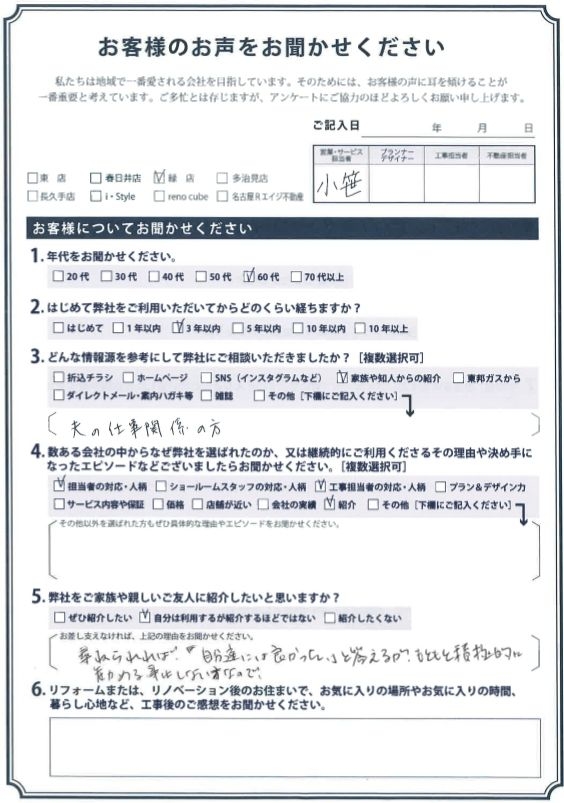 お客様のお声をお聞かせください
私たちは地域で一番愛される会社を目指しています。そのためには、お客様の声に耳を傾けることが
一番重要と考えています。ご多忙とは存じますが、アンケートにご協力のほどよろしくお願い申し上げます。
ご記入日 年 月 日
営業・サービス担当者 プランナーデザイナー 工事担当者 不動産担当者
小笹
□東 店 □春日井店 ☑緑 店 □多治見店
□長久手店 □i・Style □reno cube □名古屋Rエイジ不動産
お客様についてお聞かせください
1. 年代をお聞かせください。
□20代 □30代 □40代 □50代 ☑60代 □70代以上
2. はじめて弊社をご利用いただいてからどのくらい経ちますか？
□はじめて □1年以内 ☑3年以内 □5年以内 □10年以内 □10年以上
3. どんな情報源を参考にして弊社にご相談いただきましたか？［複数選択可］
□折込チラシ □ホームページ □SNS（インスタグラムなど） ☑家族や知人からの紹介 □東邦ガスから
□ダイレクトメール・案内ハガキ等 □雑誌 □その他［下欄にご記入ください］
夫の仕事関係の方
4. 数ある会社の中からなぜ弊社を選ばれたのか、又は継続的にご利用くださるその理由や決め手に
なったエピソードなどございましたらお聞かせください。［複数選択可］
☑担当者の対応・人柄 □ショールームスタッフの対応・人柄 ☑工事担当者の対応・人柄 □プラン＆デザイン力
□サービス内容や保証 □価格 □店舗が近い □会社の実績 ☑紹介 □その他［下欄にご記入ください］
その他以外を選ばれた方もぜひ具体的な理由やエピソードをお聞かせください。
5. 弊社をご家族や親しいご友人に紹介したいと思いますか？
□ぜひ紹介したい ☑自分は利用するが紹介するほどではない □紹介したくない
お差し支えなければ、上記の理由をお聞かせください。
尋ねられれば、『自分達には良かった。』と答えるが、もともと積極的に
勧める事はしない方なので、
6. リフォームまたは、リノベーション後のお住まいで、お気に入りの場所やお気に入りの時間、
暮らし心地など、工事後のご感想をお聞かせください。